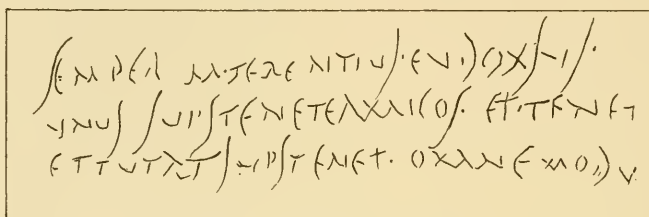 SEMPER M·TERENTIUS·EUDOXSUS·
UNUS SUPSTENET AMICOS· ET·TENET
ET TUTAT SUPSTENET· OMNE MODU